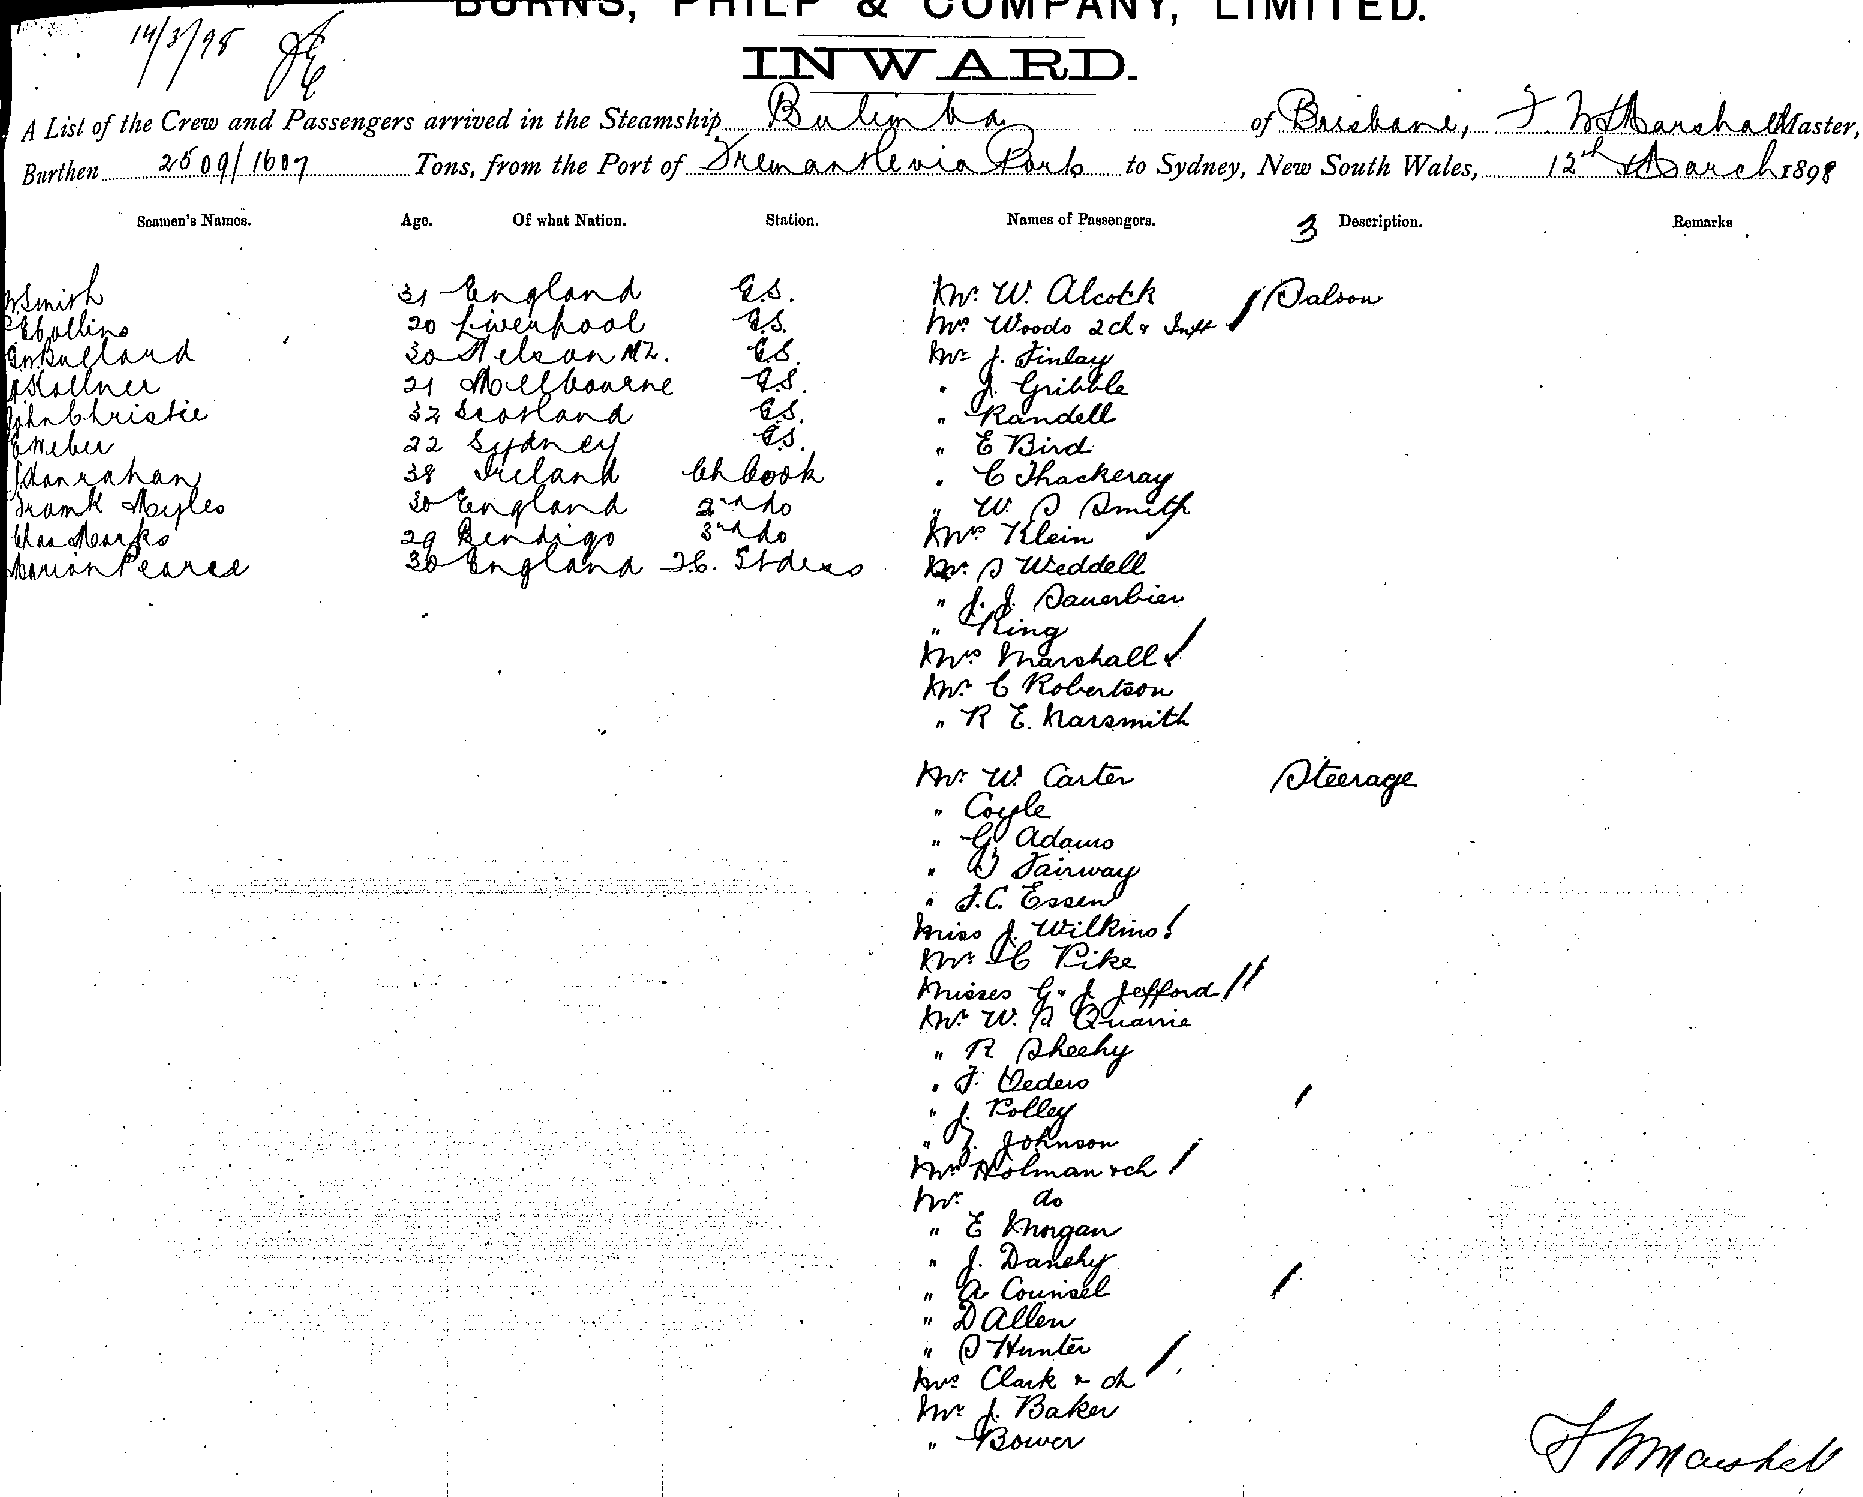 BURNS, PHILP & COMPANY, LIMITED.
14/3/98
INWARD.
A List of the Crew and Passengers arrived in the Steamship Bulimba of Brisbane, F. W. Marshall Master,
Burthen 2509/1607 Tons, from the Port of Fremantle via Ports to Sydney, New South Wales, 12th March 1898
Seamen's Names. Age. Of what Nation. Station. Names of Passengers. 3 Description. Remarks
Smith 31 England G.S. Mr. W. Alcock Saloon
Collins 20 Liverpool G.S. Mrs Woods 2 ch & Inft
Bullard 30 Nelson NZ. G.S. Mr J. Finlay
21 Melbourne G.S. " J. Gribble
John Christie 32 Scotland G.S. " Randell
E Weber 22 Sydney G.S. " E Bird
Hanrahan 38 Ireland Ch Cook " C Thackeray
Frank Myles 30 England 2nd do " W. S Smith
Chas Marks 29 Bendigo 3rd do Mrs Klein
Marion Pearce 30 England F.C. Stdess Mr. S Weddell
" J. J. Sauerbier
" King
Mrs Marshall
Mr. C Robertson
" R E. Narsmith
Mr. W. Carter Steerage
" Coyle
" G. Adams
" S Fairway
" F. C. Essen
Miss J. Wilkins
Mr. C Pike
Misses G & J. Jefford
Mr. W. S Quarrie
" R Sheehy
" F. Oeders
" J. Polley
" J. Johnson
Mrs Holman & ch
Mr. do
" E Morgan
" J. Danehy
" A Counsel
" D Allen
" S Hunter
Mrs Clark & ch
Mr J. Baker
" Bower
F W Marshall